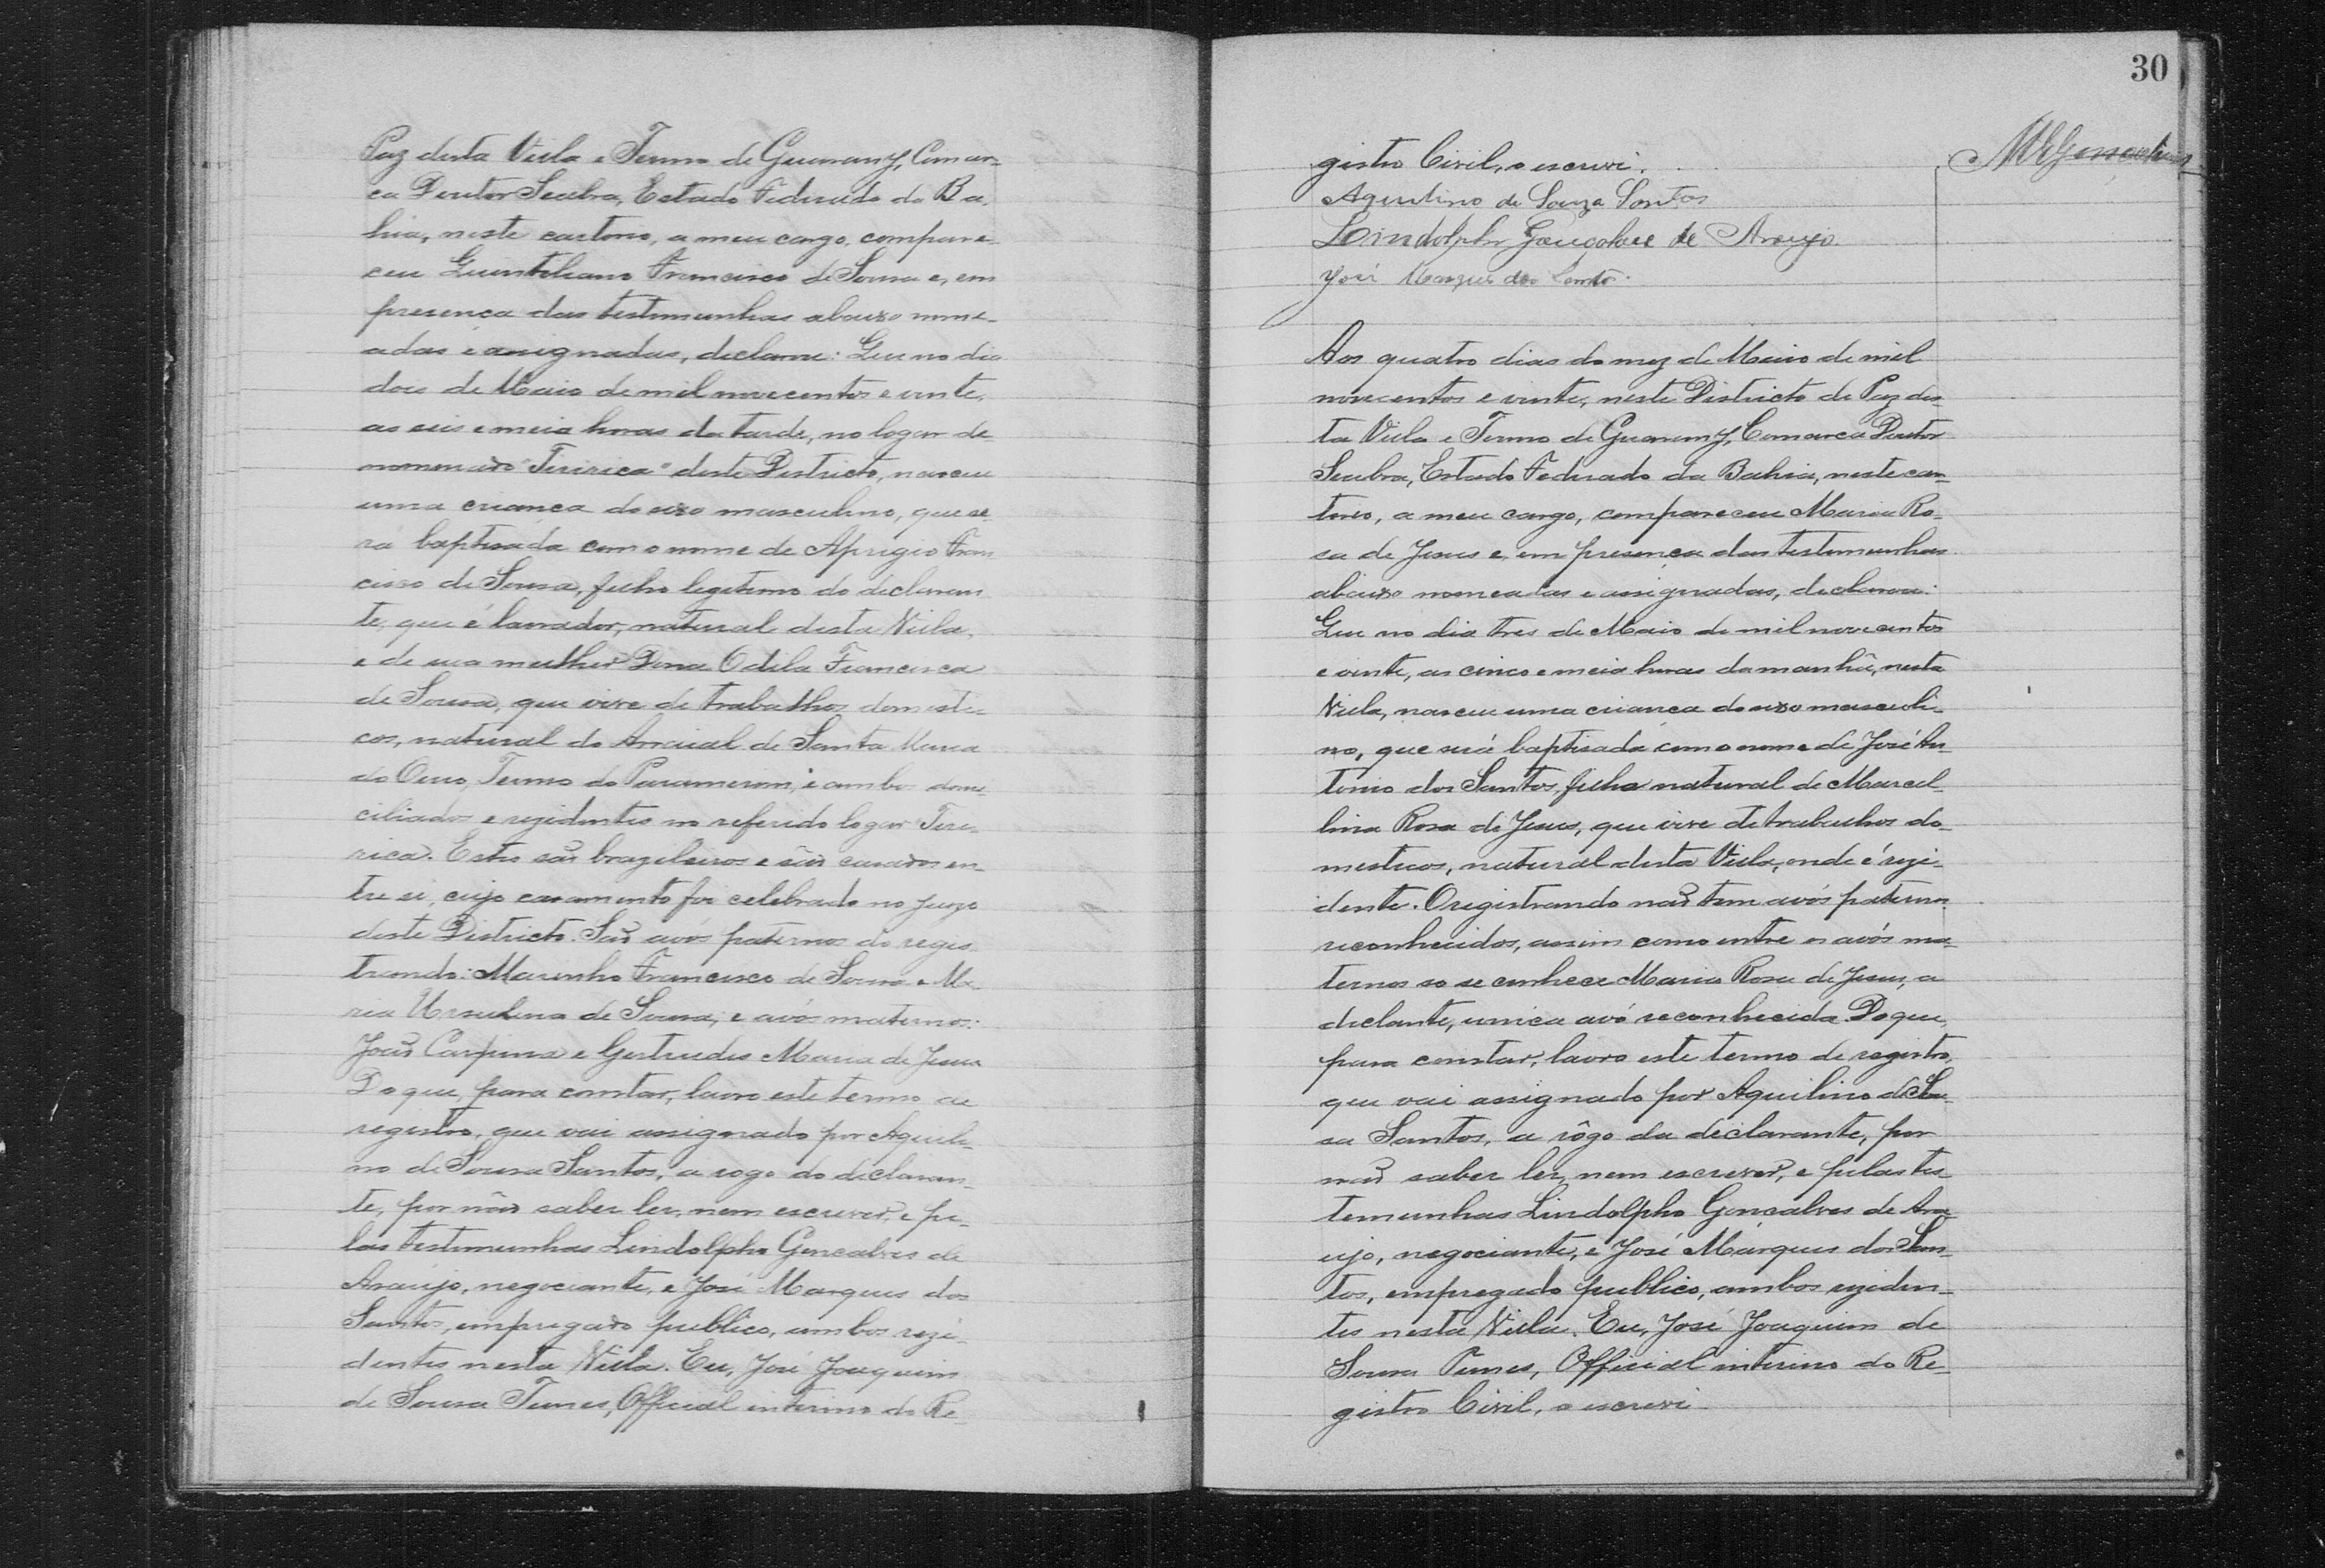 Paz desta Villa e Termo de Guarany, Comar-
ca Doutor Seabra, Estado Federado da Ba-
hia, neste cartorio, a meu cargo, compare-
ceu Quintiliano Francisco de Sousa e, em
presença das testemunhas abaixo nome-
adas e assignadas, declarou: Que no dia
dois de Maio de mil novecentos e vinte,
as seis e meia horas da tarde, no logar de-
nominado "Teririca" deste Districto, nasceu
uma criança do sexo masculino, que se-
rá baptisada com o nome de Aprigio Fran-
cisco de Sousa, filho legitimo do declaran-
te, que é lavrador, natural desta Villa,
e de sua mulher Dona Odila Francisca
de Sousa, que vive de trabalhos domesti-
cos, natural do Arraial de Santa Maria
do Ouro, Termo do Paramirim, e ambos domi-
ciliados e rezidentes no referido logar Teri-
rica. Estes são brazileiros e são casados en-
tre si, cujo casamento foi celebrado no Juizo
deste Districto. São avós paternos do regis-
trando: Marinho Francisco de Sousa e Ma-
ria Ursulina de Sousa; e avós maternos:
João Carpina e Gertrudes Maria de Jesus.
Do que, para constar, lavro este termo de
registro, que vai assignado por Aquili-
no de Sousa Santos, a rogo do declaran-
te, por não saber ler, nem escrever, e pe-
las testemunhas Lindolpho Gonçalves de
Araujo, negociante, e José Marques dos
Santos, empregado publico, ambos rezi-
dentes nesta Villa. Eu, José Joaquim
de Sousa Tunes, Official interino do Re-
30
gistro Civil, o escrevi.
Aquilino de Souza Santos
Lindolpho Gonçalves de Araujo.
José Marques dos Santos.
Aos quatro dias do mez de Maio de mil
novecentos e vinte, neste Districto de Paz des-
ta Villa e Termo de Guarany, Comarca Doutor
Seabra, Estado Federado da Bahia, neste car-
torio, a meu cargo, compareceu Maria Ro-
sa de Jesus e, em presença das testemunhas
abaixo nomeadas e assignadas, declarou:
Que no dia tres de Maio de mil novecentos
e vinte, as cinco e meia horas da manhã, nesta
Villa, nasceu uma criança do sexo masculi-
no, que será baptisada com o nome de José An-
tonio dos Santos, filho natural de Marcel-
lina Rosa de Jesus, que vive de trabalhos do-
mesticos, natural desta Villa, onde é rezi-
dente. O registrando não tem avós paternos
reconhecidos, assim como entre os avós ma-
ternos so se conhece Maria Rosa de Jesus, a
declante, unica avó reconhecida. Do que,
para constar, lavro este termo de registro,
que vai assignado por Aquilino de Sou-
sa Santos, a rôgo da declarante, por
não saber ler, nem escrever, e pelas tes-
temunhas Lindolpho Gonçalves de Ara-
ujo, negociante, e José Marques dos San-
tos, empregado publico, ambos reziden-
tes nesta Villa. Eu, José Joaquim de
Sousa Tunes, Official interino do Re-
gistro Civil, o escrevi.